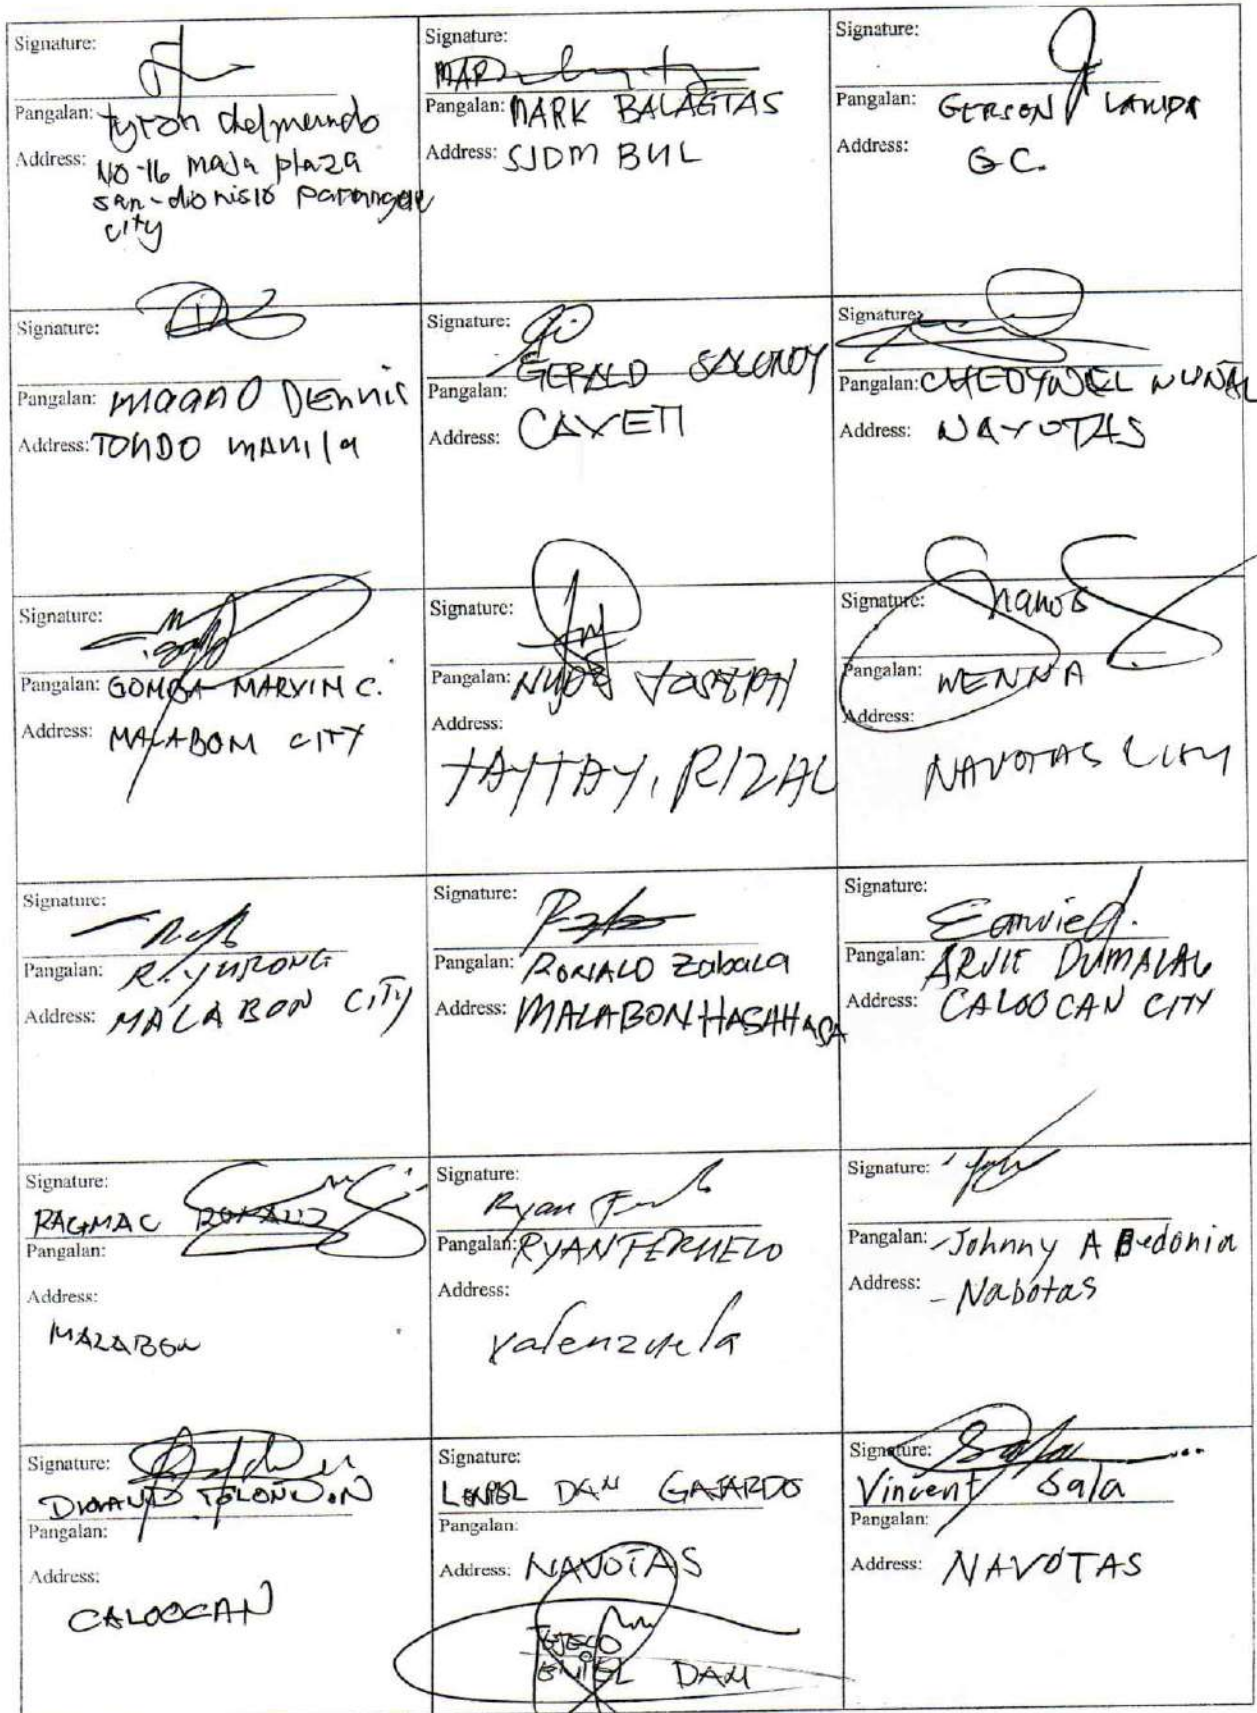 Signature:
Pangalan: tyron delmundo
Address: NO-16 maja plaza
san-dionisio paranaque
city
Signature:
MAR
Pangalan: MARK BALAGTAS
Address: SJDM BUL
Signature:
Pangalan: GERSON
Address: GC.
Signature:
Pangalan: Magno Dennis
Address: TONDO MANIla
Signature:
Pangalan: GERALD
Address: CAVETI
Signature:
Pangalan: NUÑAL
Address: NAVOTAS
Signature:
Pangalan: GOMBA MARVIN C.
Address: MALABON CITY
Signature:
Pangalan: JOSEPH
Address:
TAYTAY, RIZAL
Signature:
Pangalan: WENNA
Address:
NAVOTAS CITY
Signature:
Pangalan: R. YURONG
Address: MALABON CITY
Signature:
Pangalan: RONALD Zabala
Address: MALABON HASAHASA
Signature:
Pangalan: ARVIE DUMALAG
Address: CALOOCAN CITY
Signature:
RAGMAC RONALD
Pangalan:
Address:
MALABON
Signature: Ryan
Pangalan: RYAN FERMELO
Address:
Valenzuela
Signature:
Pangalan: - Johnny A Bedonia
Address: - Nabotas
Signature:
Pangalan:
Address:
CALOOCAN
Signature:
DAN GAJARDO
Pangalan:
Address: NAVOTAS
DAN
Signature:
Vincent Sala
Pangalan:
Address: NAVOTAS